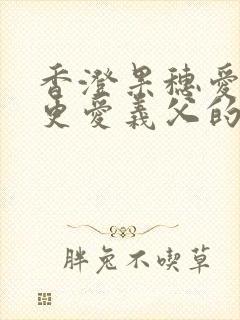 香澄果穗愛
更愛義父的
胖兔不喫草